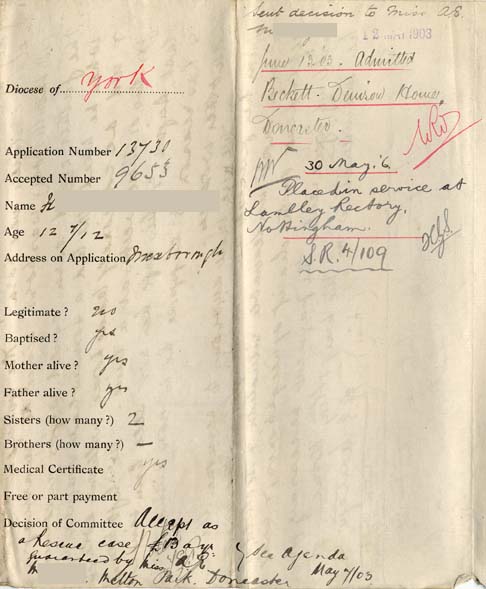 Diocese of York
Application Number 13730
Accepted Number 9653
Name H
Age 12 7/12
Address on Application Mexborough
Legitimate? no
Baptised? yes
Mother alive? yes
Father alive? yes
Sisters (how many?) 2
Brothers (how many?) –
Medical Certificate yes
Free or part payment
Decision of Committee Accept as
a Rescue case £13 a yr.
guaranteed by Miss A E
M Melton Park. Doncaster
See Agenda
May 7/03
Sent decision to Miss A.E.
M 12 MAY 1903
June 13.03. Admitted
Beckett-Denison Home,
Doncaster.
30 May '6
Placed in service at
Lambley Rectory,
Nottingham.
S.R. 4/109